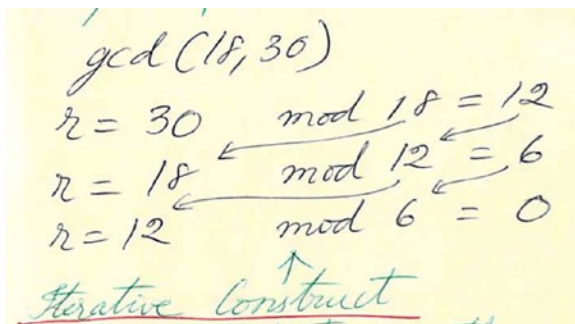 gcd (18, 30)
r = 30 mod 18 = 12
r = 18 mod 12 = 6
r = 12 mod 6 = 0
Iterative Construct